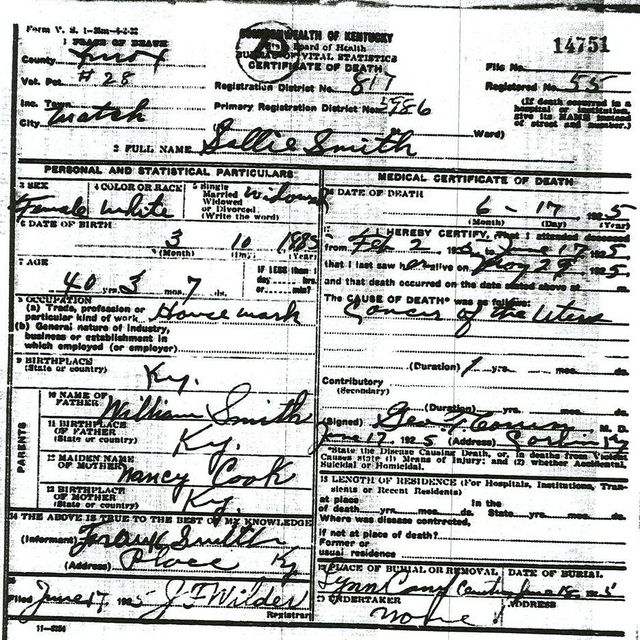 Form V. S. 1-35m-4-2-22
COMMONWEALTH OF KENTUCKY
14751
1 PLACE OF DEATH
Board of Health
BUREAU OF VITAL STATISTICS
CERTIFICATE OF DEATH
County Knox
File No.
Vot. Pct. # 28
Registration District No. 817
Registered No. 55
Inc. Town
Primary Registration District No. 5986
(If death occurred in a hospital or institution, give its NAME instead of street and number.)
City
Ward)
2 FULL NAME Sallie Smith
PERSONAL AND STATISTICAL PARTICULARS
MEDICAL CERTIFICATE OF DEATH
3 SEX Female
4 COLOR OR RACE White
5 Single Married Widowed or Divorced (Write the word) Widowed
16 DATE OF DEATH 6 - 17, 1925
(Month) (Day) (Year)
6 DATE OF BIRTH 3 10 1885
(Month) (Day) (Year)
17 I HEREBY CERTIFY, That I attended deceased
from Feb 2, 192 to June 17, 1925
that I last saw h alive on 29, 1925
and that death occurred on the date stated above at m.
7 AGE 40 yrs. 3 mos. 7 ds.
IF LESS than 1 day hrs. or min?
The CAUSE OF DEATH* was as follows:
Cancer of the Uterus
8 OCCUPATION
(a) Trade, profession or particular kind of work House work
(b) General nature of industry, business or establishment in which employed (or employer)
(Duration) 1 yrs. mos. ds.
9 BIRTHPLACE
(State or country) Ky.
Contributory
(Secondary)
(Duration) yrs. mos. ds.
PARENTS
10 NAME OF FATHER William Smith
(Signed) Geo. M. D.
11 BIRTHPLACE OF FATHER
(State or country) Ky.
June 17, 1925 (Address) Corbin Ky
*State the Disease Causing Death, or, in deaths from Violent Causes state (1) Means of Injury; and (2) whether Accidental, Suicidal or Homicidal.
12 MAIDEN NAME OF MOTHER Nancy Cook
13 BIRTHPLACE OF MOTHER
(State or country) Ky.
18 LENGTH OF RESIDENCE (For Hospitals, Institutions, Transients or Recent Residents)
At place of death yrs. mos. ds.
In the State yrs. mos. ds.
Where was disease contracted,
if not at place of death?
Former or
usual residence
14 THE ABOVE IS TRUE TO THE BEST OF MY KNOWLEDGE
(Informant) Frank Smith
(Address) Place Ky
19 PLACE OF BURIAL OR REMOVAL
DATE OF BURIAL
Lynn Camp June 18 1925
15
Filed June 17, 1925 J F Wilder
Registrar
20 UNDERTAKER
ADDRESS
none
11-8254